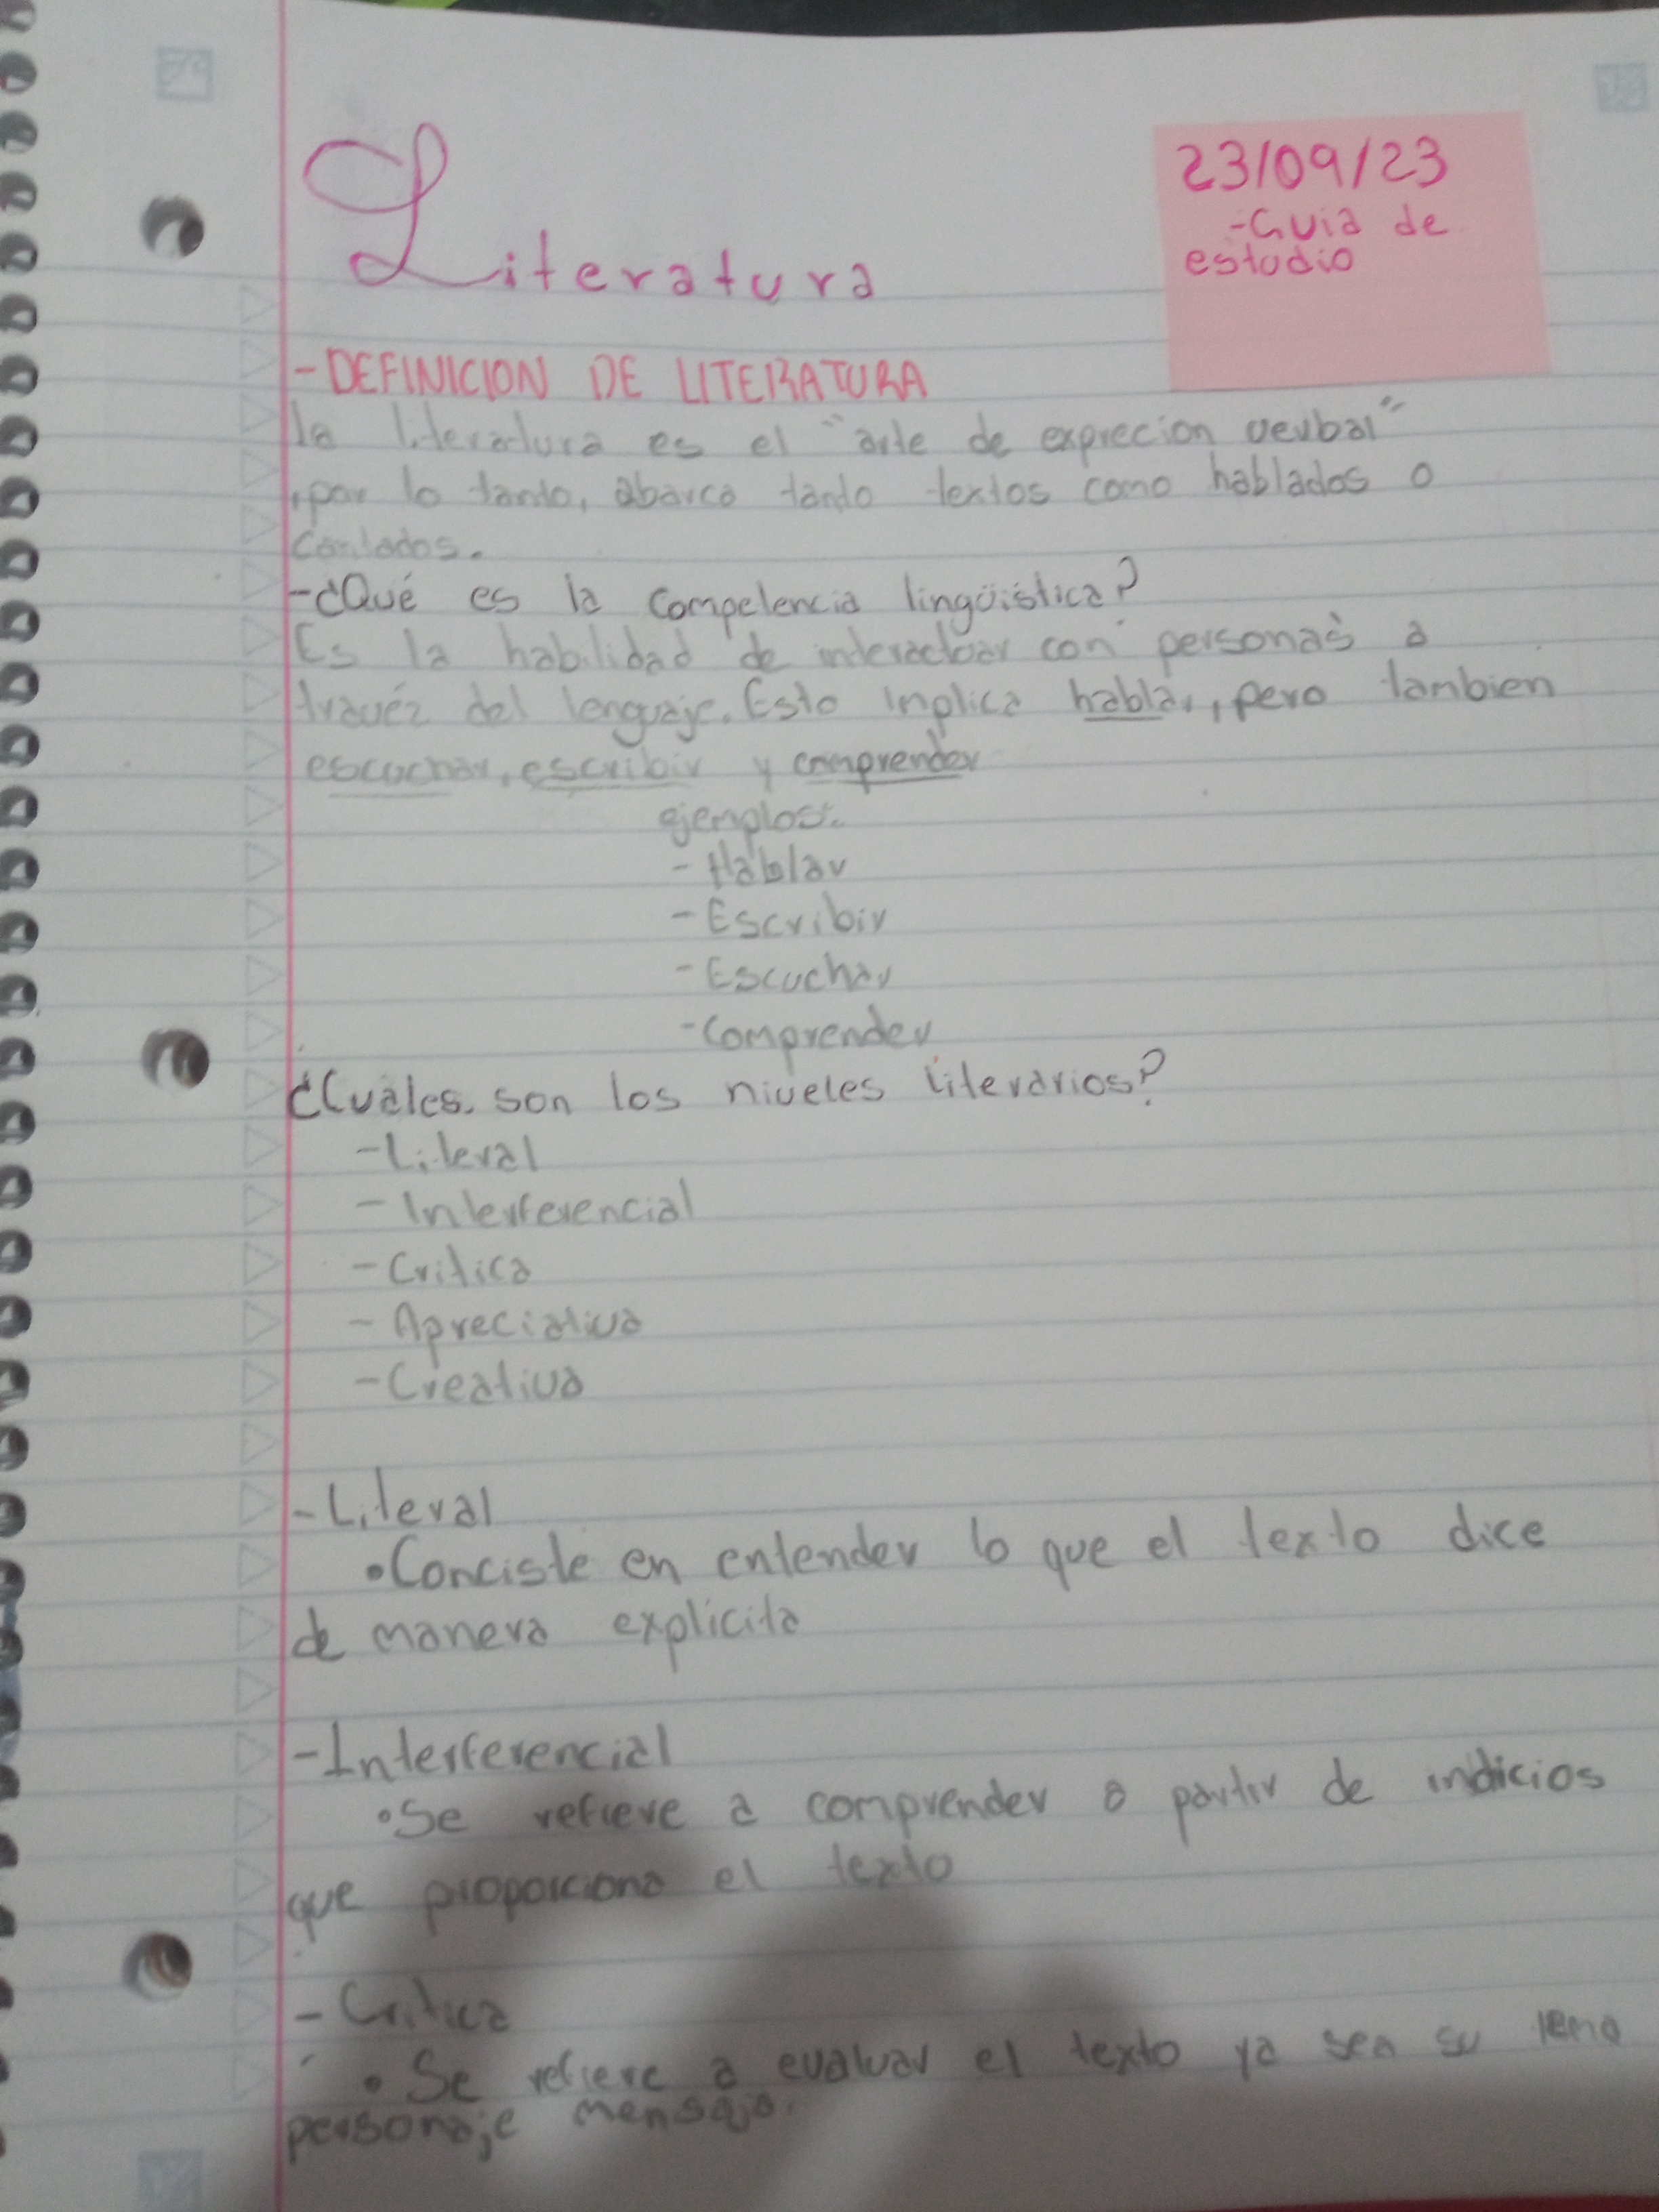 Literatura
23/09/23
-Guia de
estudio
-DEFINICION DE LITERATURA
la literatura es el "arte de exprecion verbal"
,por lo tanto, abarca tanto textos como hablados o
cantados.
-¿Qué es la competencia lingüistica?
Es la habilidad de interactuar con personas a
travéz del lenguaje. Esto inplica hablar, pero tambien
escuchar, escribir y comprender
ejemplos:
- Hablar
- Escribir
- Escuchar
- Comprender
¿Cuáles son los niveles literarios?
- Literal
- Interferencial
- Critica
- Apreciativa
- Creativa
- Literal
• Conciste en entender lo que el texto dice
de manera explicita
- Interferencial
• Se refiere a comprender a partir de indicios
que proporciona el texto
- Critica
• Se refiere a evaluar el texto ya sea su tema
personaje mensaje.